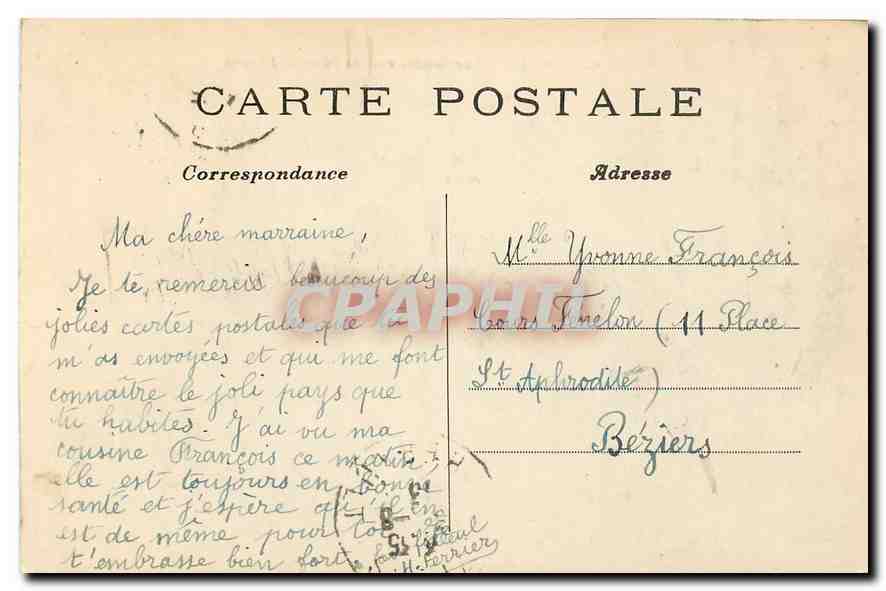 CARTE POSTALE
Correspondance
Adresse
Ma chère marraine,
Je te remercie beaucoup des
jolies cartes postales que tu
m'as envoyées et qui me font
connaître le joli pays que
tu habites. J'ai vu ma
cousine François ce matin;
elle est toujours en bonne
santé et j'espère qu'il en
est de même pour toi
t'embrasse bien fort
filleul
H. Ferrier
Mlle Yvonne François
Cours Fénélon (11 Place
St Aphrodite)
Béziers
CPAPHIL